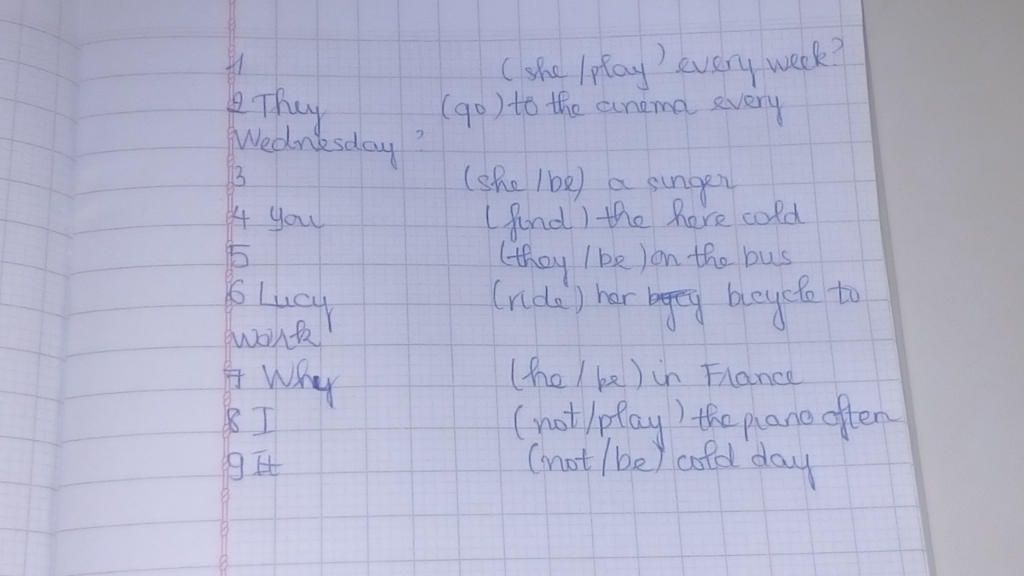 1 (she/play) every week?
2 They (go) to the cinema every
Wednesday?
3 (she/be) a singer
4 you (find) the here cold
5 (they/be) on the bus
6 Lucy (ride) her bicycle to
work
7 Why (he/be) in France
8 I (not/play) the piano often
9 It (not/be) cold day